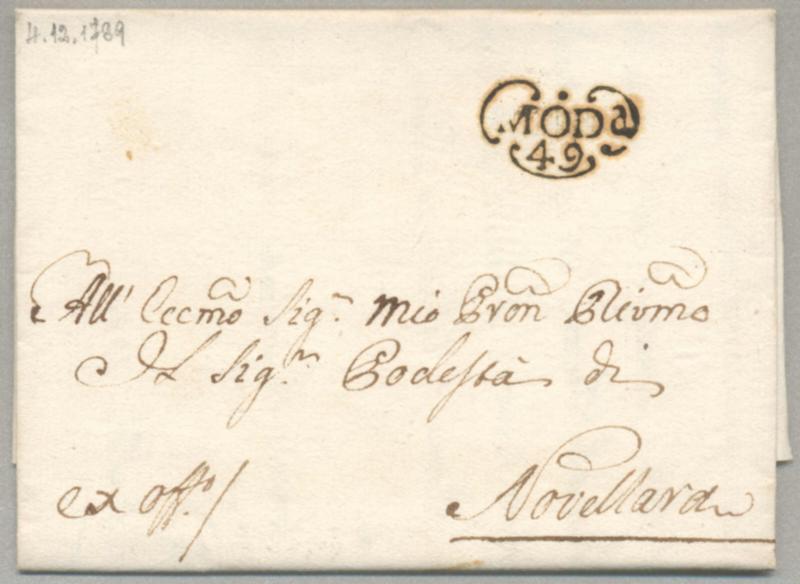 4.12.1789
MODa
49
All' Eccmo Sigr. mio Pron Colmo
Il Sigr. Podestà di
ex offo./
Novellara